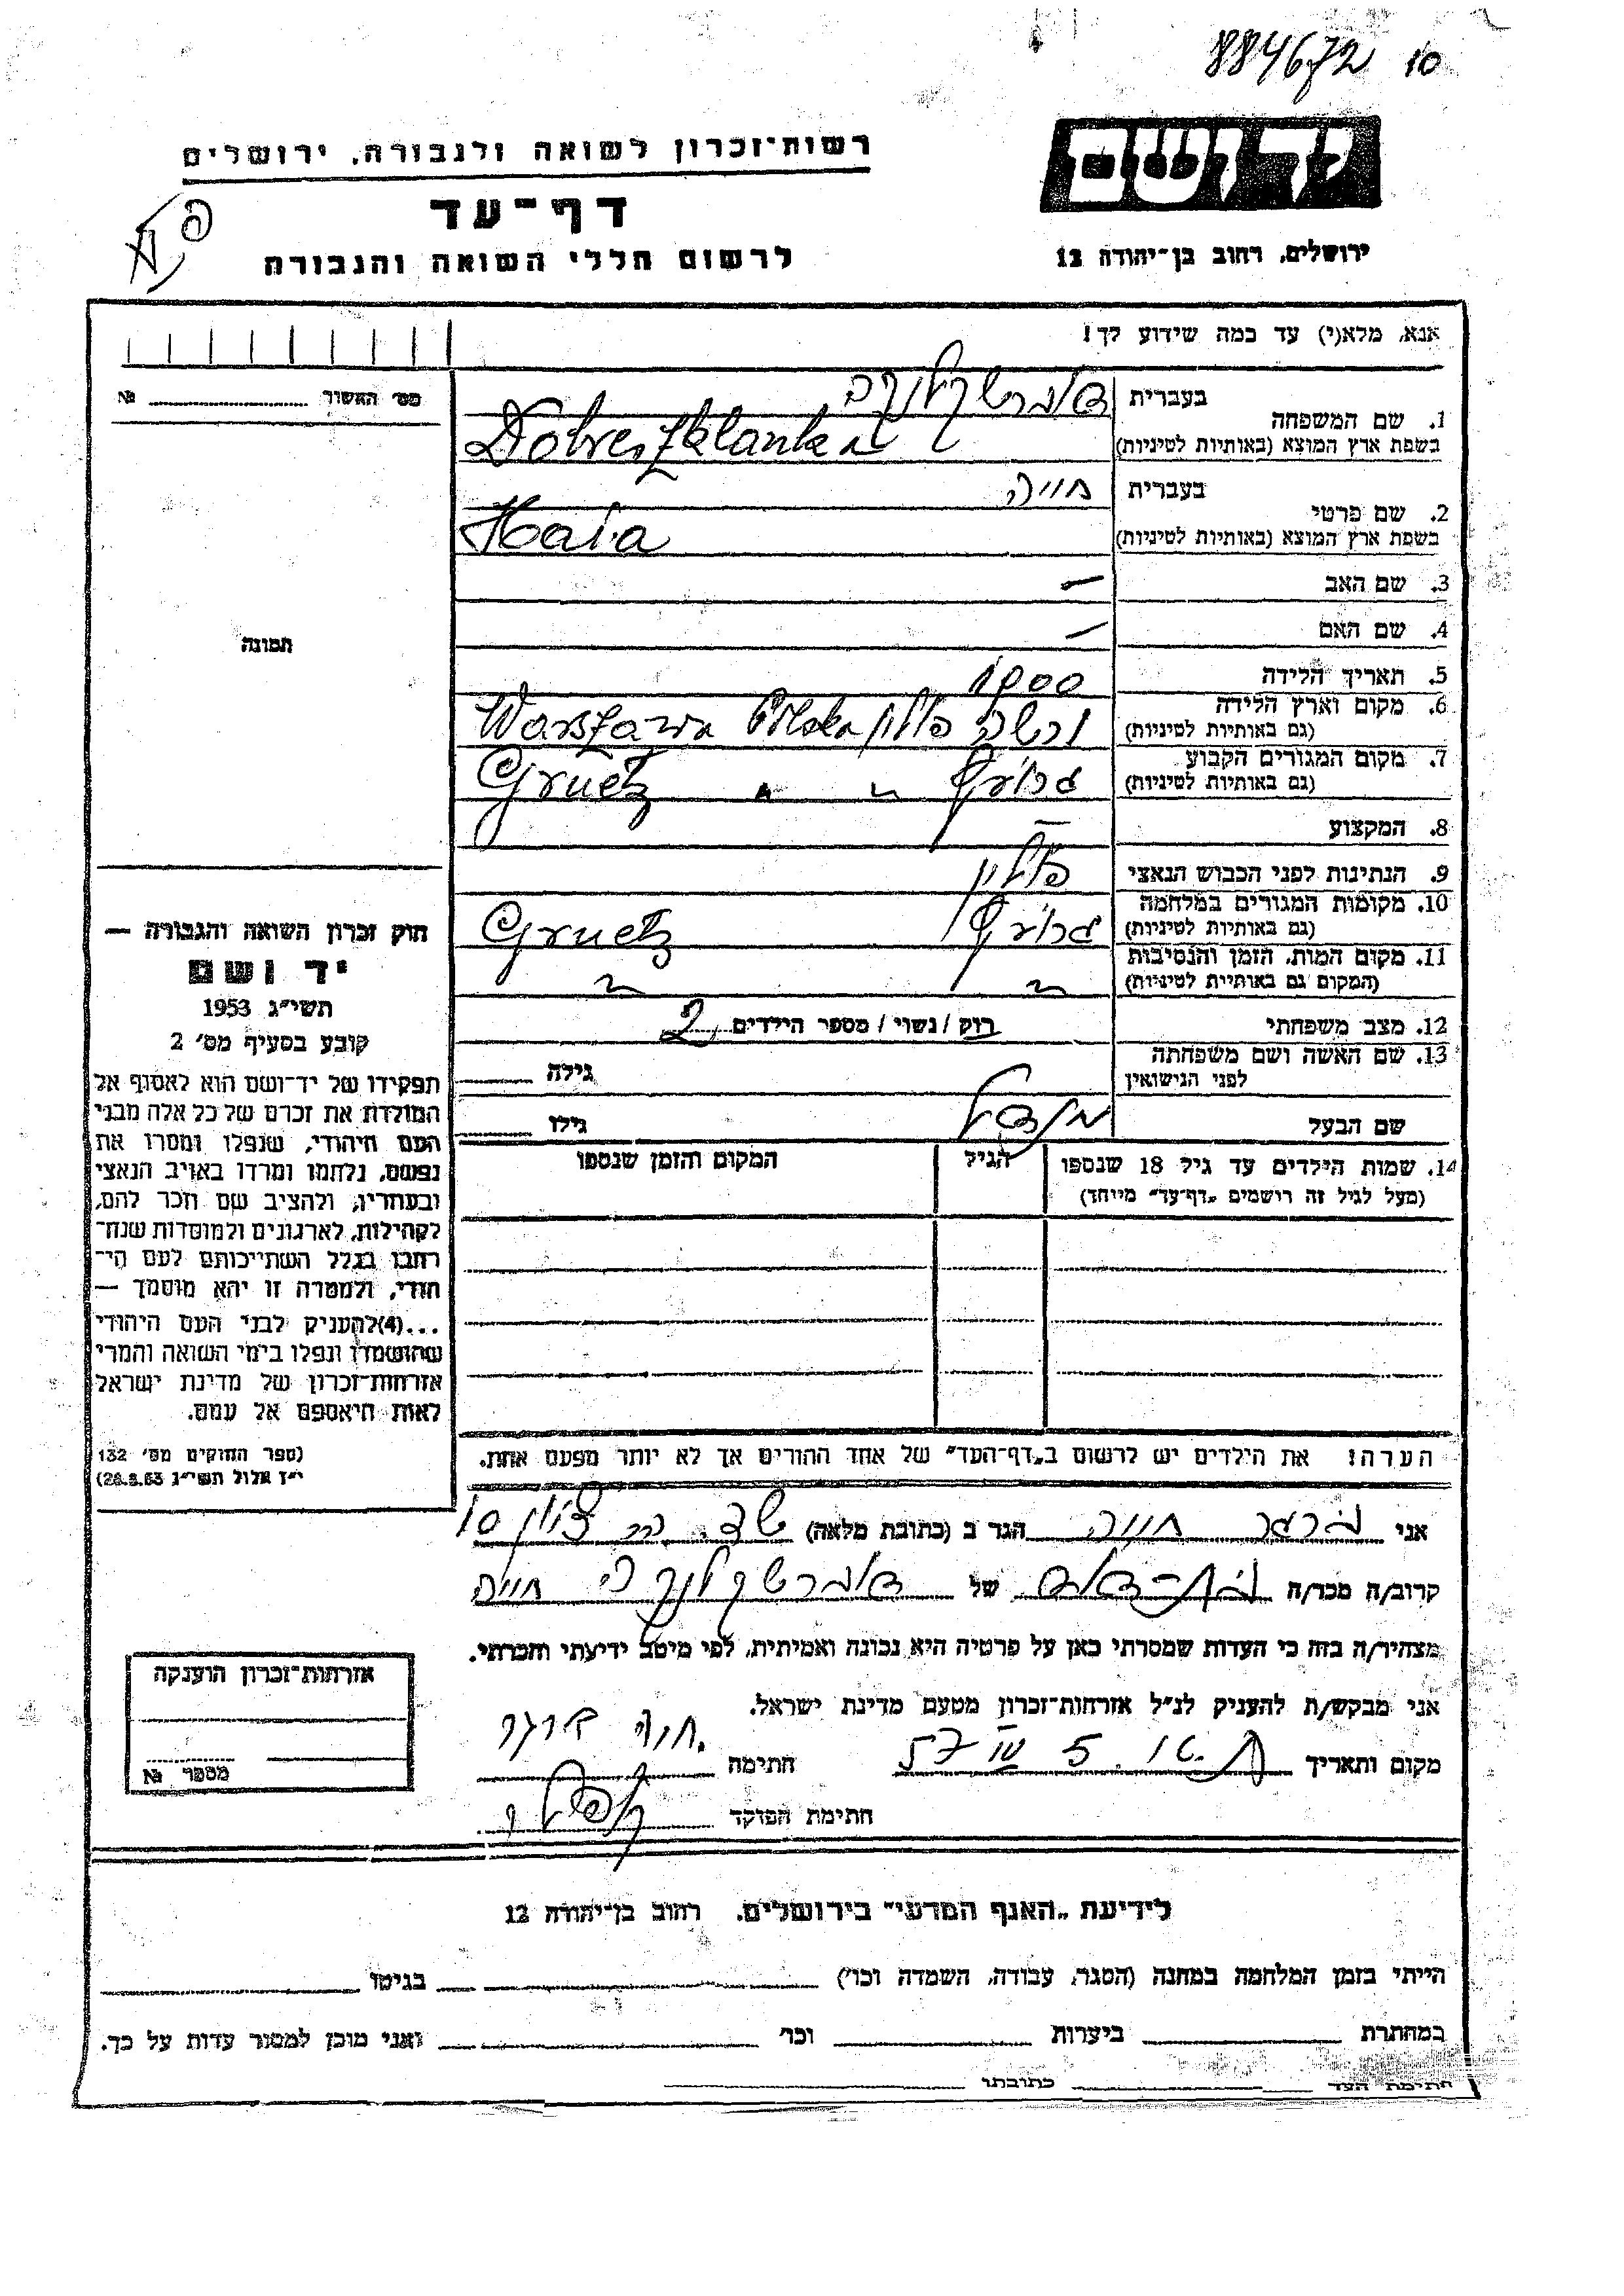 884672 10
יד ושם
רשות־זכרון לשואה ולגבורה, ירושלים
דף־עד
לרשום חללי השואה והגבורה
ירושלים, רחוב בן־יהודה 12
אנא, מלא(י) עד כמה שידוע לך!
מס׳ האשור №
1. שם המשפחה
בעברית
בשפת ארץ המוצא (באותיות לטיניות) Dobreszklanka
2. שם פרטי
בעברית חייה
בשפת ארץ המוצא (באותיות לטיניות) Haia
3. שם האב —
4. שם האם —
5. תאריך הלידה 1900
6. מקום וארץ הלידה (גם באותיות לטיניות) ורשה פולין Warszawa Polska
7. מקום המגורים הקבוע (גם באותיות לטיניות) Gruetz
8. המקצוע —
9. הנתינות לפני הכבוש הנאצי פולין
10. מקומות המגורים במלחמה (גם באותיות לטיניות) Gruetz
11. מקום המות, הזמן והנסיבות (המקום גם באותיות לטיניות)
12. מצב משפחתי רוק / נשוי / מספר הילדים 2
13. שם האשה ושם משפחתה לפני הנישואין גילה
שם הבעל מנדל גילו
14. שמות הילדים עד גיל 18 שנספו
(מעל לגיל זה רושמים „דף־עד״ מייחד)
הגיל
המקום והזמן שנספו
תמונה
חוק זכרון השואה והגבורה —
יד ושם
תשי״ג 1953
קובע בסעיף מס׳ 2
תפקידו של יד־ושם הוא לאסוף אל
המולדת את זכרם של כל אלה מבני
העם היהודי, שנפלו ומסרו את
נפשם, נלחמו ומרדו באויב הנאצי
ובעוזריו, ולהציב שם וזכר להם,
לקהילות, לארגונים ולמוסדות שנח־
רבו בגלל השתייכותם לעם הי־
הודי, ולמטרה זו יהא מוסמך —
...(4)להעניק לבני העם היהודי
שהושמדו ונפלו בימי השואה והמרי
אזרחות־זכרון של מדינת ישראל
לאות היאספם אל עמם.
(ספר החוקים מס׳ 132
י״ז אלול תשי״ג 28.8.53)
הערה: את הילדים יש לרשום ב„דף־העד״ של אחד ההורים אך לא יותר מפעם אחת.
אני ברגר חייה הגר ב (כתובת מלאה)
קרוב/ה מכר/ה בת־דוד של חייה
מצהיר/ה בזה כי העדות שמסרתי כאן על פרטיה היא נכונה ואמיתית, לפי מיטב ידיעתי והכרתי.
אני מבקש/ת להעניק לנ״ל אזרחות־זכרון מטעם מדינת ישראל.
מקום ותאריך ת. 5 IV 57 חתימה חיה ברגר
חתימת הפוקד
אזרחות־זכרון הוענקה
מספר №
לידיעת „האגף המדעי״ בירושלים, רחוב בן־יהודה 12
הייתי בזמן המלחמה במחנה (הסגר, עבודה, השמדה וכו׳) בגיטו
במחתרת ביערות וכו׳ ואני מוכן למסור עדות על כך.
חתימת העד כתובתו